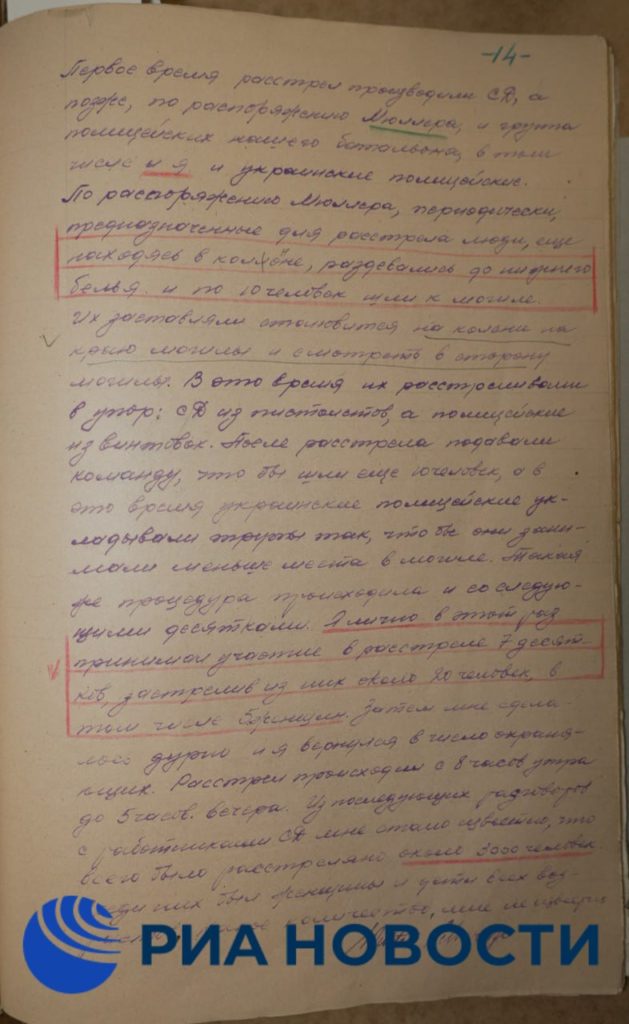 -14-
Первое время расстрел производили СД, а
позже, по распоряжению Мюллера, и группа
полицейских нашего батальона, в том
числе и я и украинские полицейские.
По распоряжению Мюллера, периодически,
предназначенные для расстрела люди, еще
находясь в колонне, раздевались до нижнего
белья и по 10 человек шли к могиле.
Их заставляли становится на колени на
краю могилы и смотреть в сторону
могилы. В это время их расстреливали
в упор: СД из пистолетов, а полицейские
из винтовок. После расстрела подавали
команду, что бы шли еще 10 человек, а в
это время украинские полицейские ук-
ладывали трупы так, что бы они зани-
мали меньше места в могиле. Такая
же процедура происходила и со следую-
щими десятками. Я лично в этот раз
принимал участие в расстреле 7 десят-
ков, застрелив из них около 20 человек, в
том числе 5 женщин. Затем мне сдела-
лось дурно и я вернулся в число охраня-
ющих. Расстрел происходил с 8 часов утра
до 5 часов вечера. Из последующих разговоров
с работниками СД мне стало известно, что
всего было расстреляно около 3000 человек.
них был женщины и дети всех воз-
количество, мне не
РИА НОВОСТИ